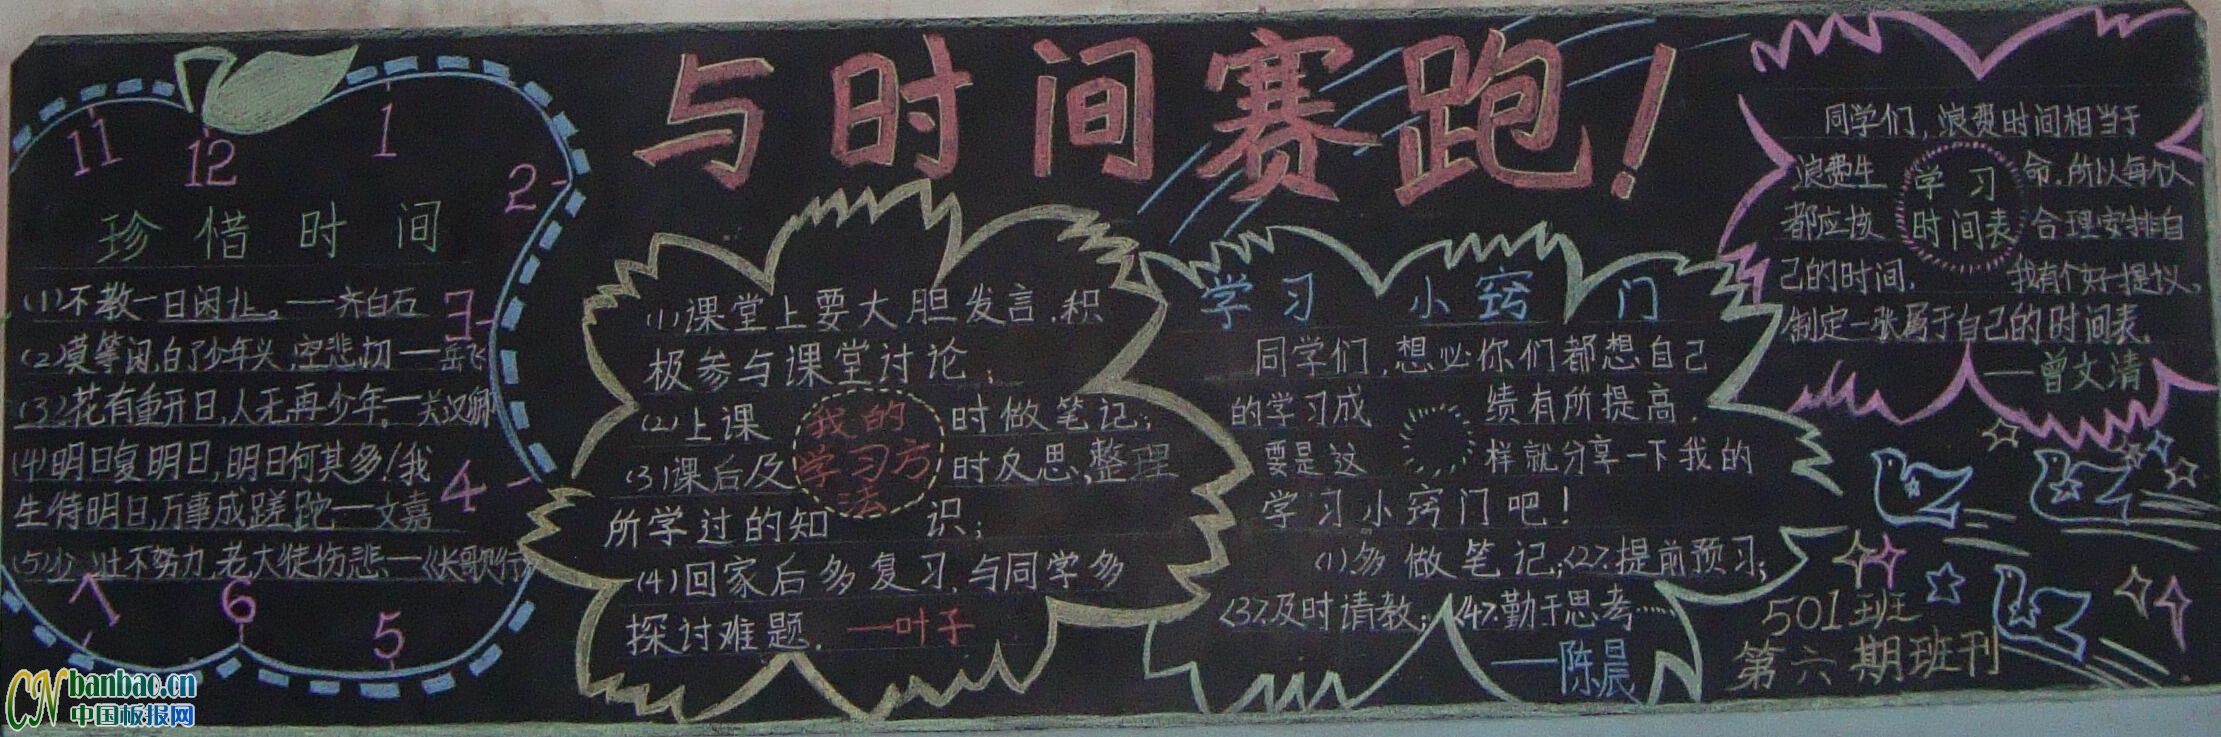 与时间赛跑!
11
12
1
2
3
4
5
6
7
珍惜时间
(1)不教一日闲过。——齐白石
(2)莫等闲,白了少年头,空悲切——岳飞
(3)花有重开日,人无再少年。—关汉卿
(4)明日复明日,明日何其多!我
生待明日,万事成蹉跎—文嘉
(5)少壮不努力,老大徒伤悲—《长歌行
我的
学习方
法
(1)课堂上要大胆发言,积
极参与课堂讨论;
(2)上课时做笔记;
(3)课后及时反思,整理
所学过的知识;
(4)回家后多复习,与同学多
探讨难题。—叶子
学习小窍门
同学们,想必你们都想自己
的学习成绩有所提高,
要是这样就分享一下我的
学习小窍门吧!
(1)多做笔记;(2)提前预习;
(3)及时请教;(4)勤于思考……
——陈晨
学习
时间表
同学们,浪费时间相当于
浪费生命,所以每个人
都应该合理安排自
己的时间,我有个好提议,
制定一张属于自己的时间表。
——曾文清
501班
第六期班刊
CN banbao.cn
中国板报网